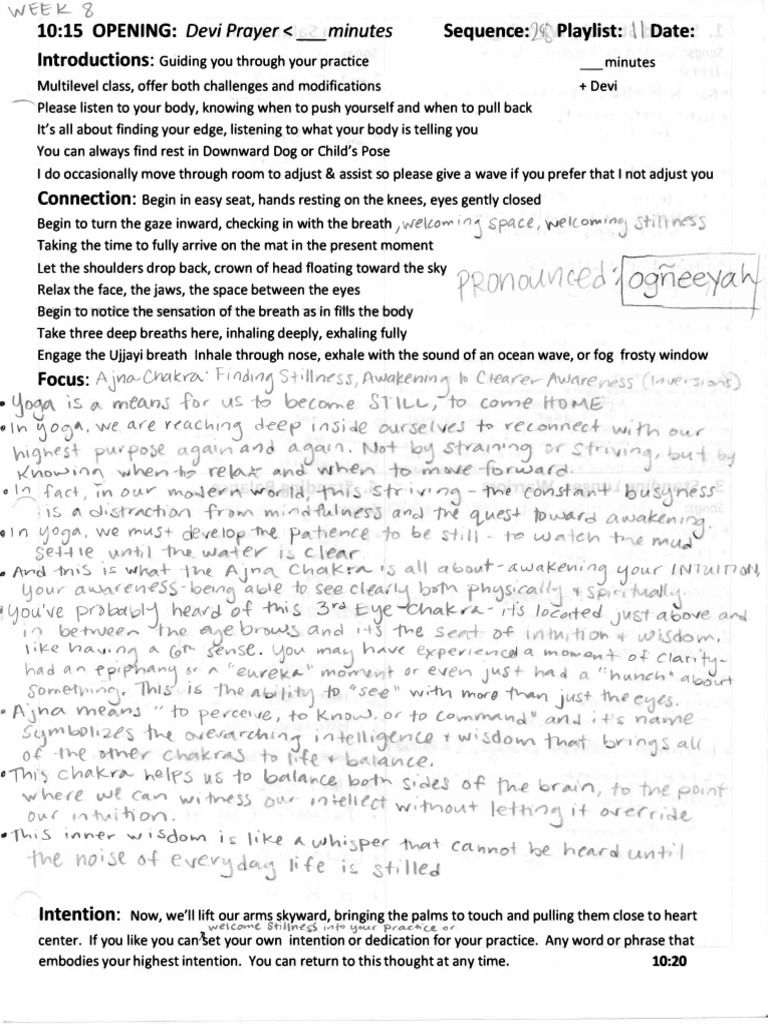 WEEK 8
10:15 OPENING: Devi Prayer < ___ minutes Sequence: 28 Playlist: 11 Date:
Introductions: Guiding you through your practice ___ minutes
Multilevel class, offer both challenges and modifications + Devi
Please listen to your body, knowing when to push yourself and when to pull back
It's all about finding your edge, listening to what your body is telling you
You can always find rest in Downward Dog or Child's Pose
I do occasionally move through room to adjust & assist so please give a wave if you prefer that I not adjust you
Connection: Begin in easy seat, hands resting on the knees, eyes gently closed
Begin to turn the gaze inward, checking in with the breath, welcoming space, welcoming stillness
Taking the time to fully arrive on the mat in the present moment
Let the shoulders drop back, crown of head floating toward the sky
PRONOUNCED: ogñeeyah
Relax the face, the jaws, the space between the eyes
Begin to notice the sensation of the breath as in fills the body
Take three deep breaths here, inhaling deeply, exhaling fully
Engage the Ujjayi breath Inhale through nose, exhale with the sound of an ocean wave, or fog frosty window
Focus: Ajna Chakra: Finding Stillness, Awakening to Clearer Awareness (Inversions)
• Yoga is a means for us to become STILL, to come HOME
• In yoga, we are reaching deep inside ourselves to reconnect with our
highest purpose again and again. Not by straining or striving, but by
knowing when to relax and when to move forward.
• In fact, in our modern world, this striving - the constant busyness
is a distraction from mindfulness and the quest toward awakening.
• In yoga, we must develop the patience to be still - to watch the mud
settle until the water is clear
• And this is what the Ajna Chakra is all about - awakening your INTUITION,
your awareness - being able to see clearly both physically + spiritually.
• You've probably heard of this 3rd Eye Chakra - it's located just above and
in between the eyebrows and it's the seat of intuition + wisdom,
like having a 6th sense. You may have experienced a moment of clarity -
had an epiphany or a "eureka" moment or even just had a "hunch" about
something. This is the ability to "see" with more than just the eyes.
• Ajna means "to perceive, to know, or to command" and it's name
symbolizes the overarching intelligence + wisdom that brings all
of the other chakras to life + balance.
• This chakra helps us to balance both sides of the brain, to the point
where we can witness our intellect without letting it override
our intuition.
• This inner wisdom is like a whisper that cannot be heard until
the noise of everyday life is stilled
Intention: Now, we'll lift our arms skyward, bringing the palms to touch and pulling them close to heart
welcome stillness into your practice or
center. If you like you can set your own intention or dedication for your practice. Any word or phrase that
embodies your highest intention. You can return to this thought at any time. 10:20